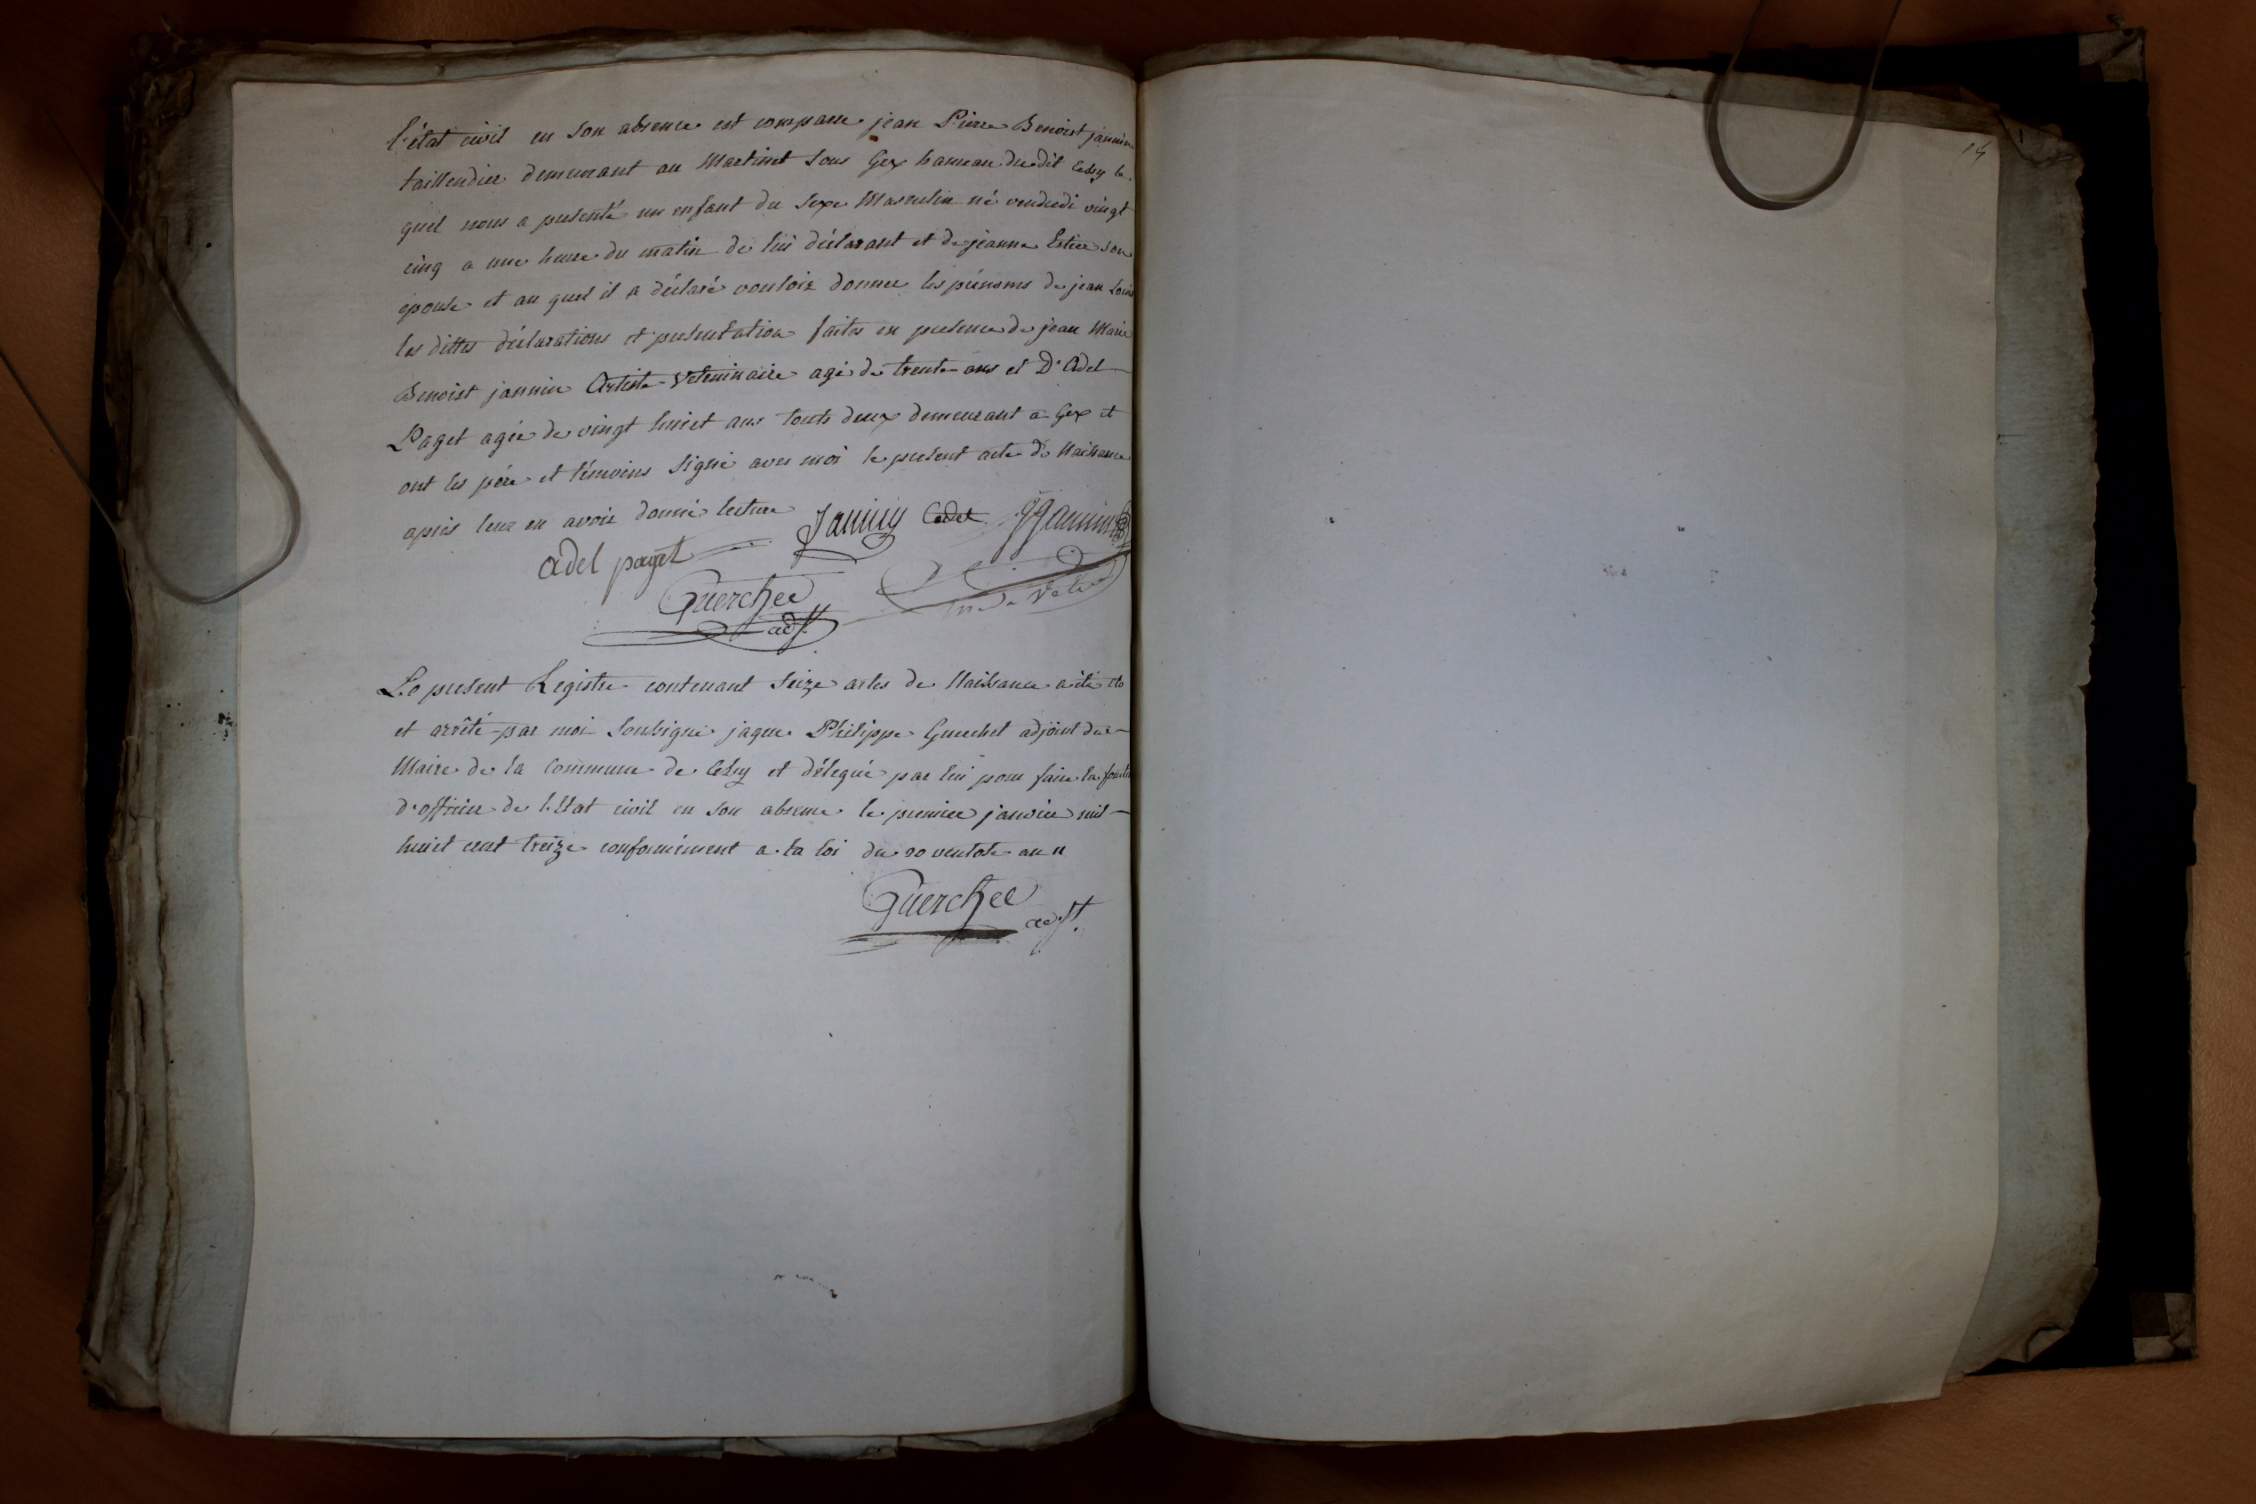 l'état civil en son absence est comparu jean Pierre Benoist jannin
taillendier demeurant au Martinet sous Gex hameau du dit Cessy le
quel nous a presenté un enfant du sexe Masculin né vendredi vingt
cinq a une heure du matin de lui déclarant et de jeanne Estier son
epouse et au quel il a déclaré vouloir donner les prénoms de jean Louis
les dittes déclarations et presentation faites en presence de jean Marie
Benoist jannin Artiste Veterinaire agé de trente ans et D. Adel
Paget agée de vingt huict ans touts deux demeurant a Gex et
ont les pére et témoins signé avec moi le present acte de Naissance
après leur en avoir donné lecture Jannin Cadet JJannin
adel paget
Guerchet
adjt.
Le present Registre contenant seize actes de Naissance a été clo
et arrêté par moi soussigné jaque Philippe Guerchet adjoint du
Maire de la Commune de Cessy et délegué par lui pour faire la
d'officier de l'Etat civil en son absence le premier janvier mil
huict cent treize conformément a la loi du 20 ventose an 11
Guerchet
adjt.
14